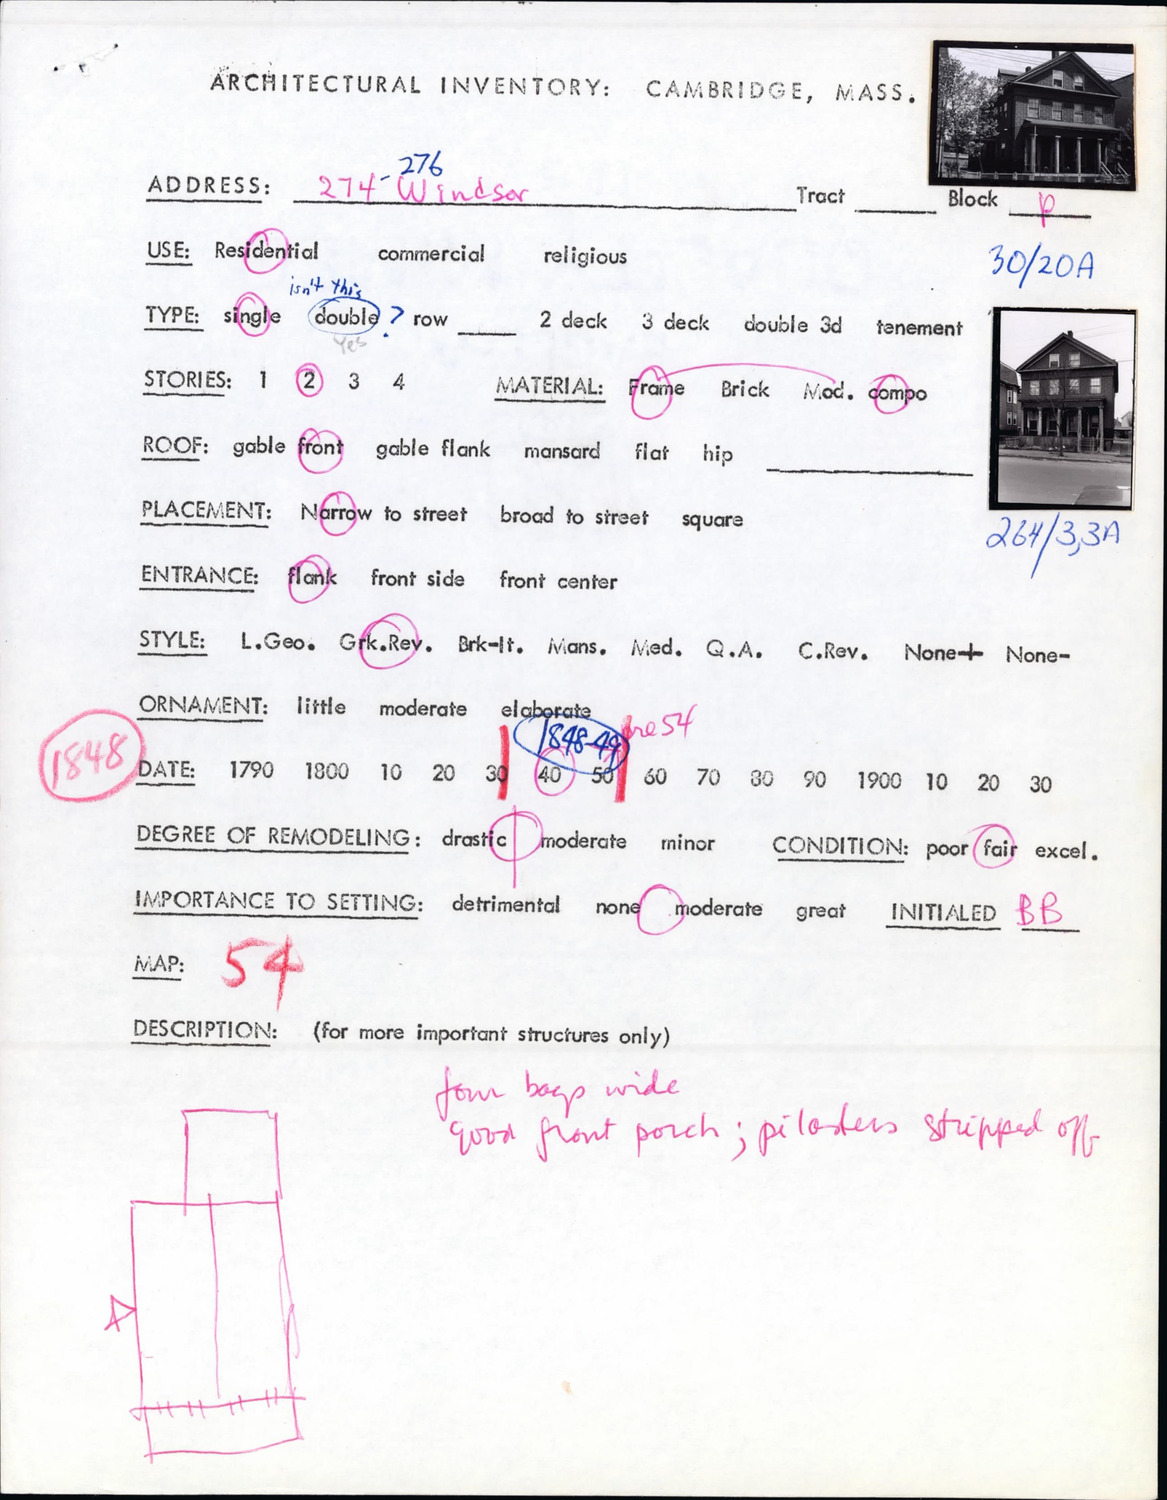 ARCHITECTURAL INVENTORY: CAMBRIDGE, MASS.
ADDRESS: 274-276 Windsor Tract ____ Block p
30/20A
USE: Residential commercial religious
isn't this
TYPE: single double ? row ____ 2 deck 3 deck double 3d tenement
Yes
STORIES: 1 2 3 4 MATERIAL: Frame Brick Mod. compo
ROOF: gable front gable flank mansard flat hip ____
PLACEMENT: Narrow to street broad to street square
264/3,3A
ENTRANCE: flank front side front center
STYLE: L.Geo. Grk.Rev. Brk-It. Mans. Med. Q.A. C.Rev. None+ None-
ORNAMENT: little moderate elaborate
1848-49 pre 54
1848 DATE: 1790 1800 10 20 30 40 50 60 70 80 90 1900 10 20 30
DEGREE OF REMODELING: drastic moderate minor CONDITION: poor fair excel.
IMPORTANCE TO SETTING: detrimental none moderate great INITIALED BB
MAP: 54
DESCRIPTION: (for more important structures only)
four bays wide
good front porch; pilasters stripped off